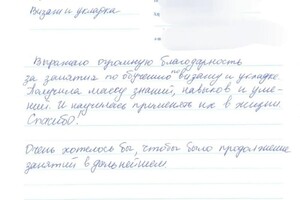 Визаж и укладка
Выражаю огромную благодарность
за занятия по обучению визажу и укладке
Получила массу знаний, навыков и уме-
ний. И научилась применять их в жизни
Спасибо!
Очень хотелось бы, чтобы было продолжение
занятий в дальнейшем